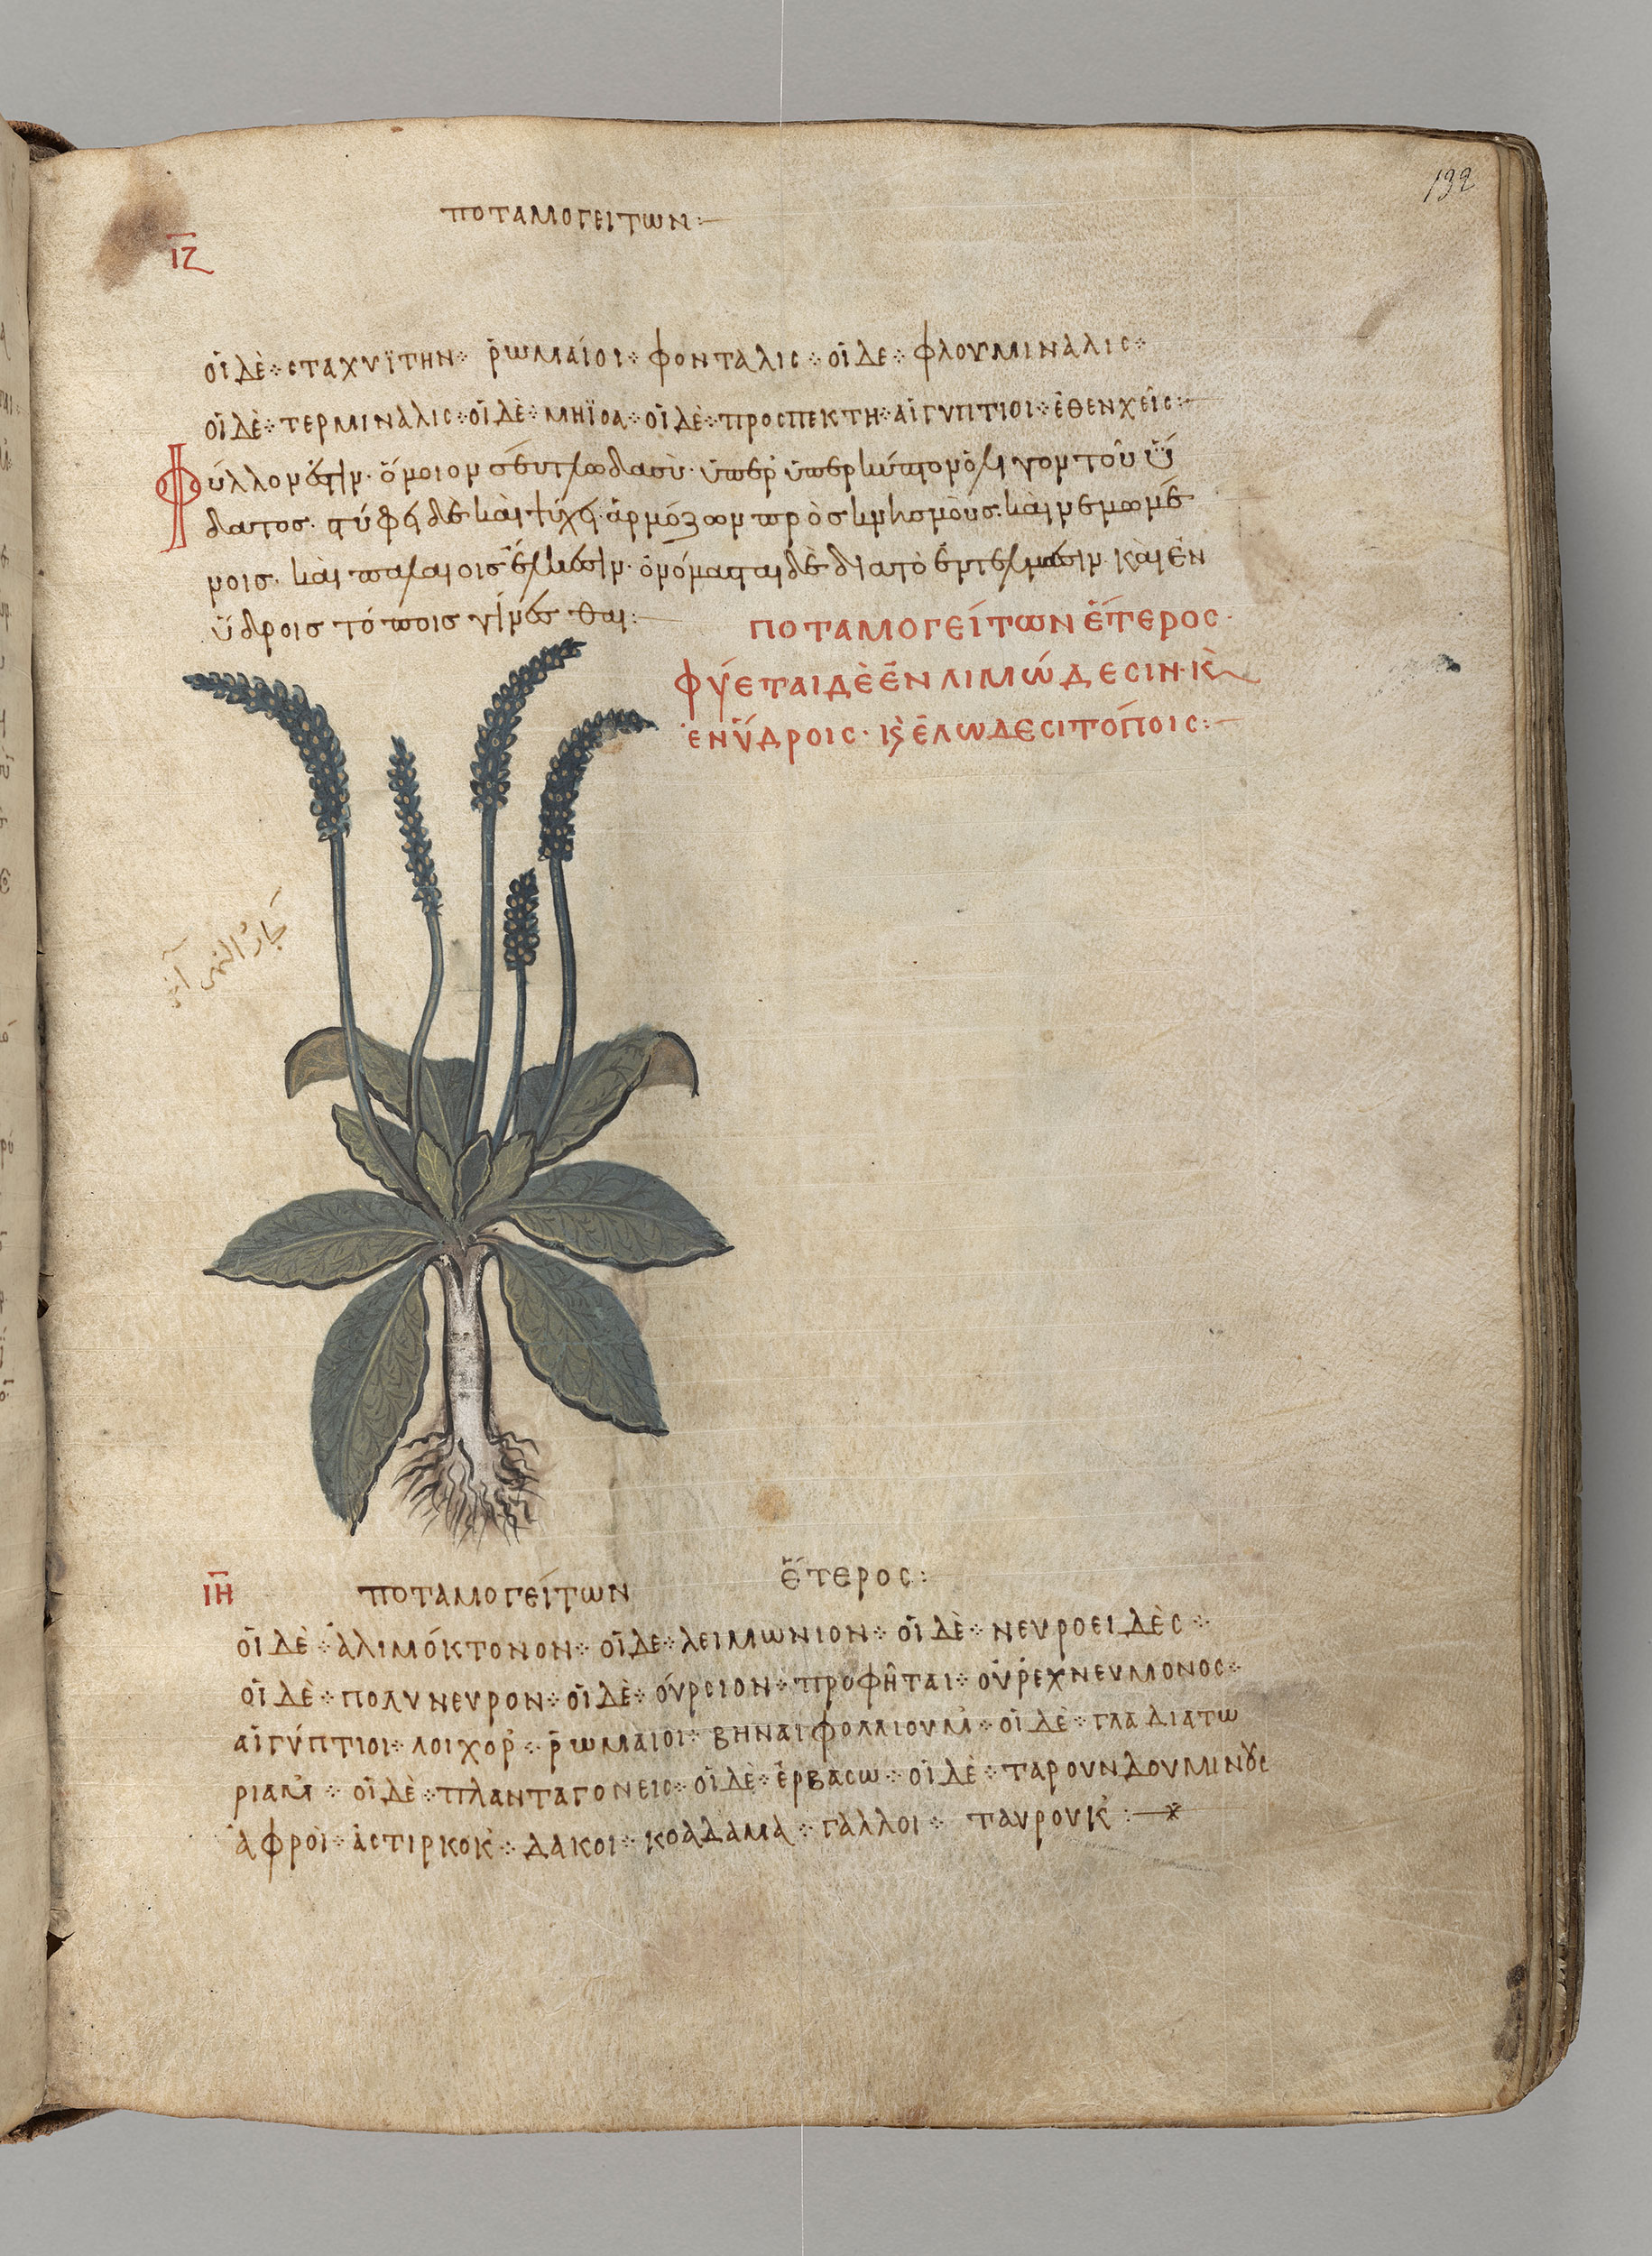 132
ΠΟΤΑΜΟΓΕΙΤΩΝ:—
ΙΖ
οἱ δὲ ⁘ ϲταχυϊτην ⁘ ῥωμαίοι ⁘ φονταλιϲ ⁘ οἱ δε ⁘ φλουμιναλιϲ ⁘
οἱ δὲ ⁘ τερμιναλιϲ ⁘ οἱ δὲ ⁘ μηϊοα ⁘ οἱ δὲ ⁘ προϲπεκτη ⁘ αἰγυπτιοι ⁘ ἐθενχεῖϲ ⁘—
Φύλλον ἐστὶν· ὅμοιον σεύτλω δασὺ· ὑπερ ὑπερκύπτον ὀλίγον τοῦ ὕ
δατος· στύφει δὲ καὶ ψύχει· ἁρμόζων πρὸς κνησμοὺς· καὶ νεμωμέ
νοις· καὶ παλαιοις ἕλκεσιν· ὀνόμασται δὲ διὰ τὸ ἐν τέλμασιν· καὶ ἐν
ὕδροις τόποις γίνεσθαι:—
ΠΟΤΑΜΟΓΕΊΤΩΝ ἝΤΕΡΟϹ·
ΦΎΕΤΑΙ ΔῈ ἘΝ ΛΙΜΏΔΕϹΙΝ· Κ̀
ἘΝΎΔΡΟΙϹ· Κ̀ ἙΛΩΔΕϹΙ ΤΌΠΟΙϹ:—
ΙΗ ΠΟΤΑΜΟΓΕΊΤΩΝ ἝΤΕΡΟϹ:
οἱ δὲ ⁘ ἁλιμόκτονον ⁘ οἱ δε ⁘ λειμωνιον ⁘ οἱ δὲ ⁘ νευροειδὲϲ ⁘
οἱ δὲ ⁘ πολυνευρον ⁘ οἱ δὲ ⁘ ούρϲιον ⁘ προφῆται ⁘ οὐρεχνευμονοϲ ⁘
αἰγύπτιοι ⁘ λοιχορ ⁘ ῥωμὰιοι ⁘ βηναιφολλιουμ ⁘ οἱ δὲ ⁘ γλαδιατω
ριαμ ⁘ οἱ δὲ ⁘ πλανταγονειϲ ⁘ οἱ δὲ ⁘ ἑρβαϲω ⁘ οἱ δὲ ⁘ ταρουνδουμινουϲ
ἀφροὶ ⁘ ἀϲτιρκοκ ⁘ δακοι ⁘ κοαδαμα ⁘ γαλλοι ⁘ ταυρουκ :—